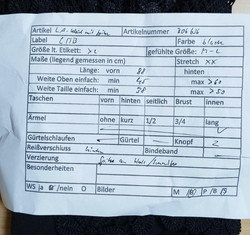 Artikel Artikelnummer
Label CMB Farbe
Größe lt. Etikett: XL gefühlte Größe M-L
Maße (liegend gemessen in cm) Stretch XX
Länge: vorn 88 hinten
Weite Oben einfach: min 45 max >60
Weite Taille einfach: min 38 max >50
Taschen vorn hinten seitlich Brust innen
Ärmel ohne kurz 1/2 3/4 lang
Gürtelschlaufen Gürtel Knopf 2
Reißverschluss hinten Bindeband
Verzierung
Besonderheiten
WS ja /nein O Bilder M P/B